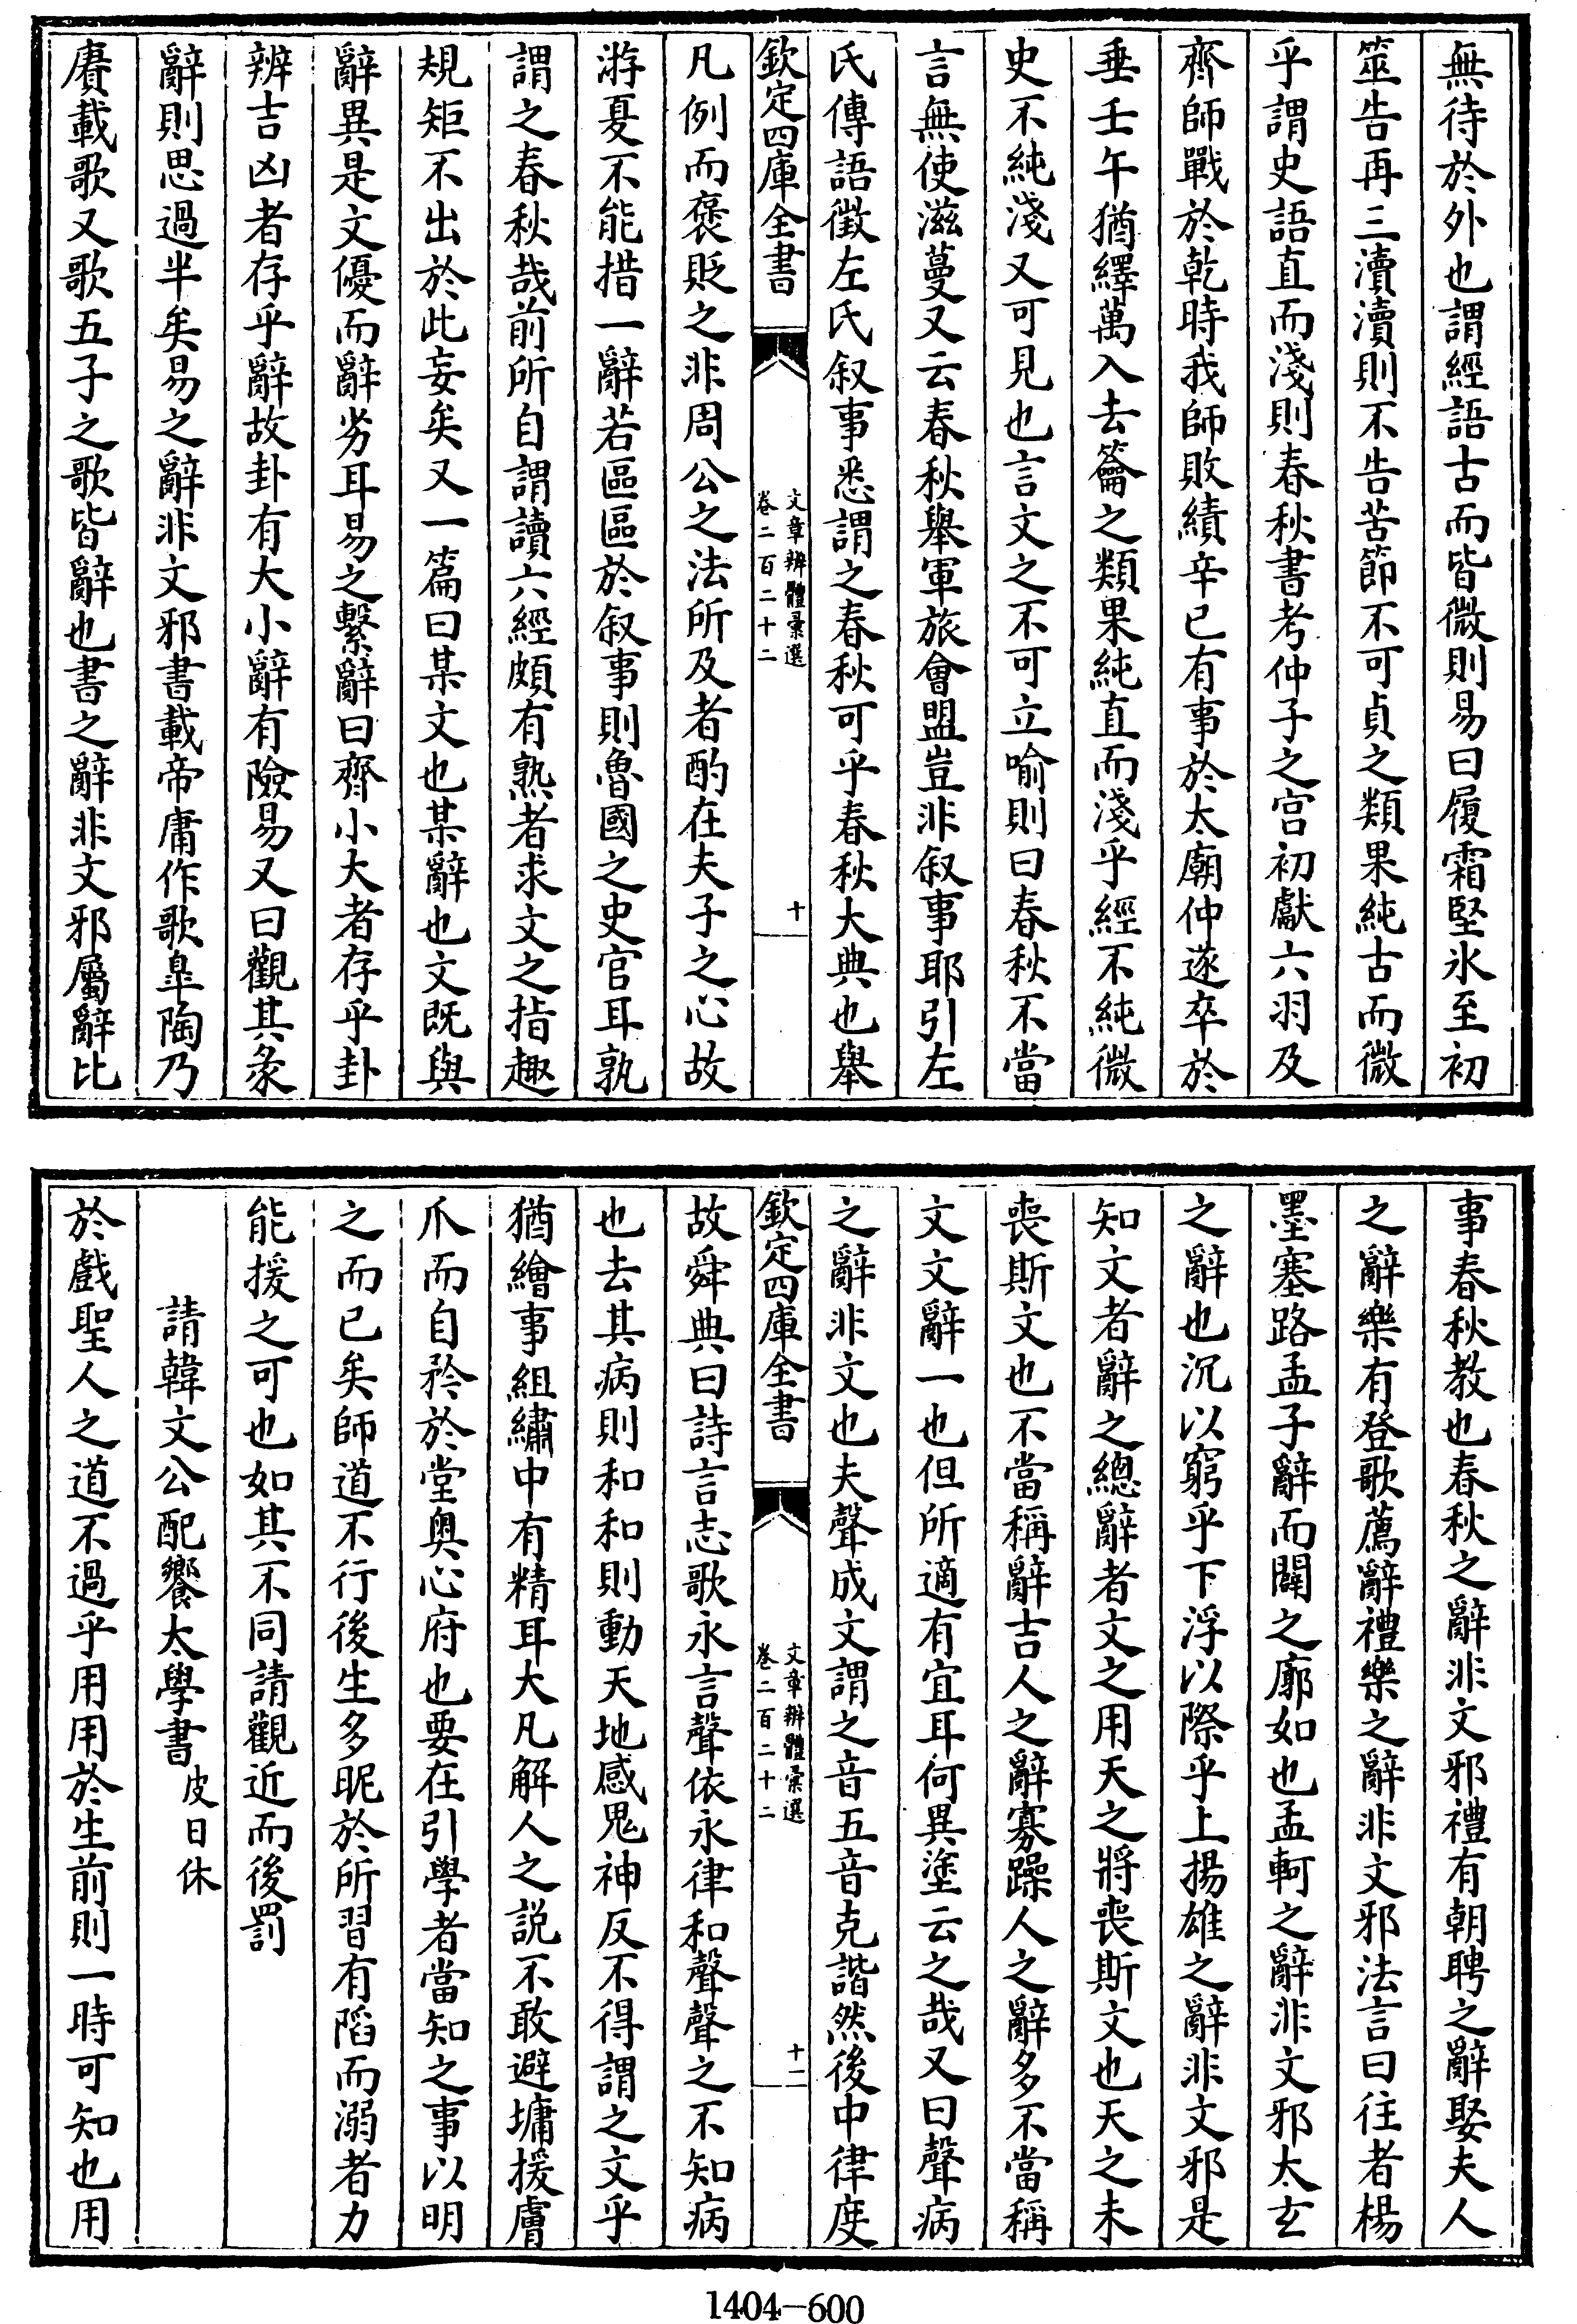 無待於外也謂經語古而皆微則易曰履霜堅氷至初
筮告再三瀆瀆則不告苦節不可貞之類果純古而微
乎謂史語直而淺則春秋書考仲子之宫初獻六羽及
齊師戰於乾時我師敗績辛已有事於太廟仲遂卒於
垂壬午猶繹萬入去籥之類果純直而淺乎經不純微
史不純淺又可見也言文之不可立喻則曰春秋不當
言無使滋蔓又云春秋舉軍旅會盟豈非叙事耶引左
氏傳語徵左氏叙事悉謂之春秋可乎春秋大典也舉
欽定四庫全書
文章辨體彚選
卷二百二十二
十
凡例而褒貶之非周公之法所及者酌在夫子之心故
游夏不能措一辭若區區於叙事則魯國之史官耳孰
謂之春秋哉前所自謂讀六經頗有熟者求文之指趣
規矩不出於此妄矣又一篇曰某文也某辭也文既與
辭異是文優而辭劣耳易之繫辭曰齊小大者存乎卦
辨吉凶者存乎辭故卦有大小辭有險易又曰觀其彖
辭則思過半矣易之辭非文邪書載帝庸作歌臯陶乃
賡載歌又歌五子之歌皆辭也書之辭非文邪屬辭比
事春秋教也春秋之辭非文邪禮有朝聘之辭娶夫人
之辭樂有登歌薦辭禮樂之辭非文邪法言曰往者楊
墨塞路孟子辭而闢之廓如也孟軻之辭非文邪太玄
之辭也沉以窮乎下浮以際乎上揚雄之辭非文邪是
知文者辭之總辭者文之用天之將喪斯文也天之未
喪斯文也不當稱辭吉人之辭寡躁人之辭多不當稱
文文辭一也但所適有宜耳何異塗云之哉又曰聲病
之辭非文也夫聲成文謂之音五音克諧然後中律度
欽定四庫全書
文章辨體彚選
卷二百二十二
十一
故舜典曰詩言志歌永言聲依永律和聲聲之不知病
也去其病則和和則動天地感鬼神反不得謂之文乎
猶繪事組繡中有精耳大凡解人之説不敢避墉援膚
爪而自矜於堂奥心府也要在引學者當知之事以明
之而已矣師道不行後生多昵於所習有陷而溺者力
能援之可也如其不同請觀近而後罰
請韓文公配饗太學書 皮日休
於戲聖人之道不過乎用用於生前則一時可知也用
1404-600